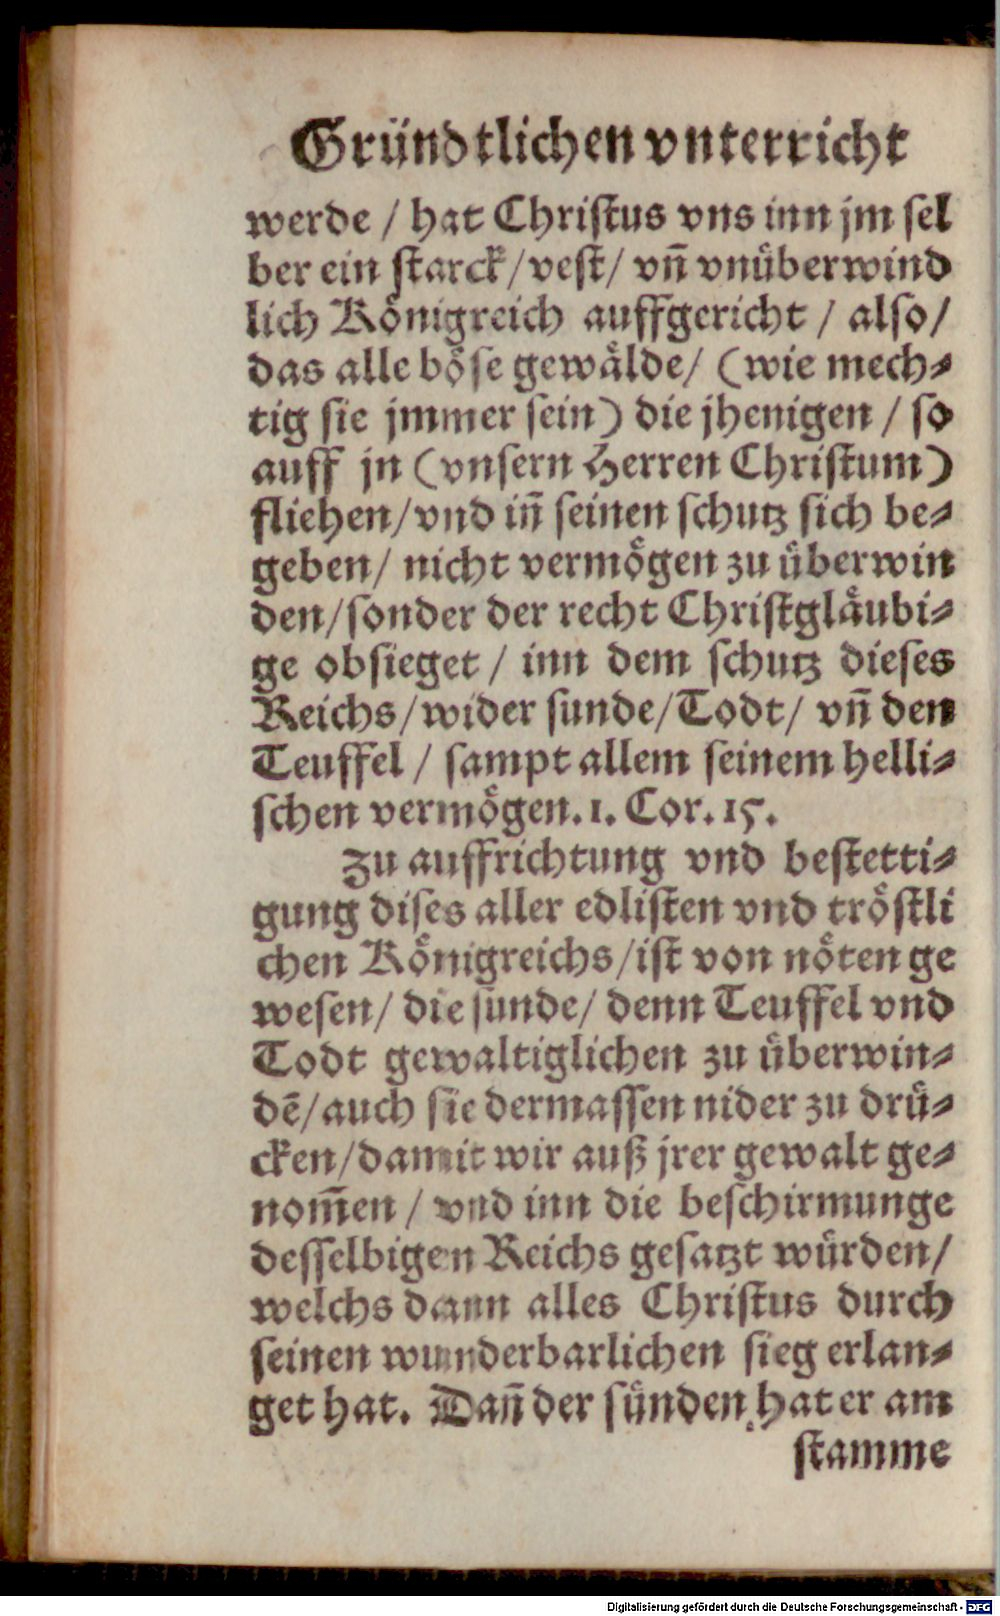 Gründtlichen vnterricht
werde / hat Christus vns inn jm sel
ber ein starck/vest/ vñ vnüberwind
lich Königreich auffgericht / also/
das alle böse gewälde/ (wie mech⸗
tig sie jmmer sein) die jhenigen / so
auff jn (vnsern Herren Christum)
fliehen/vnd iñ seinen schutz sich be⸗
geben/ nicht vermögen zu überwin
den/sonder der recht Christgläubi⸗
ge obsieget / inn dem schutz dieses
Reichs/wider sunde/Todt/ vñ den
Teuffel / sampt allem seinem helli⸗
schen vermögen.1. Cor.15.
Zu auffrichtung vnd bestetti⸗
gung dises aller edlisten vnd tröstli
chen Königreichs/ist von nöten ge
wesen/ die sunde/ denn Teuffel vnd
Todt gewaltiglichen zu überwin⸗
dē/auch sie dermassen nider zu drü⸗
cken/damit wir auß jrer gewalt ge⸗
nom̄en / vnd inn die beschirmunge
desselbigen Reichs gesatzt würden/
welchs dann alles Christus durch
seinen wunderbarlichen sieg erlan⸗
get hat. Dañ der sünden hat er am
stamme
Digitalisierung gefördert durch die Deutsche Forschungsgemeinschaft - DFG